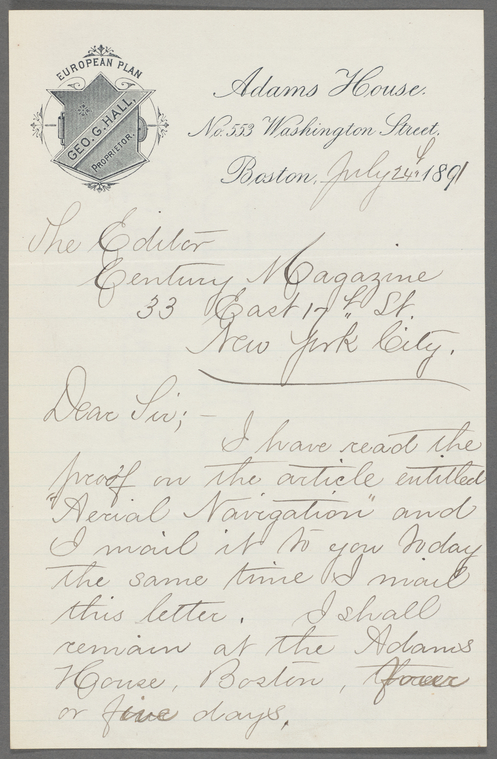 EUROPEAN PLAN
GEO. G. HALL,
PROPRIETOR.
Adams House.
No. 553 Washington Street,
Boston, July 24th 1891
The Editor
Century Magazine
33 East 17th St.
New York City.
Dear Sir; -
I have read the
proof on the article entitled
"Aerial Navigation" and
I mail it to you today
the same time I mail
this letter. I shall
remain at the Adams
House, Boston, four
or five days.